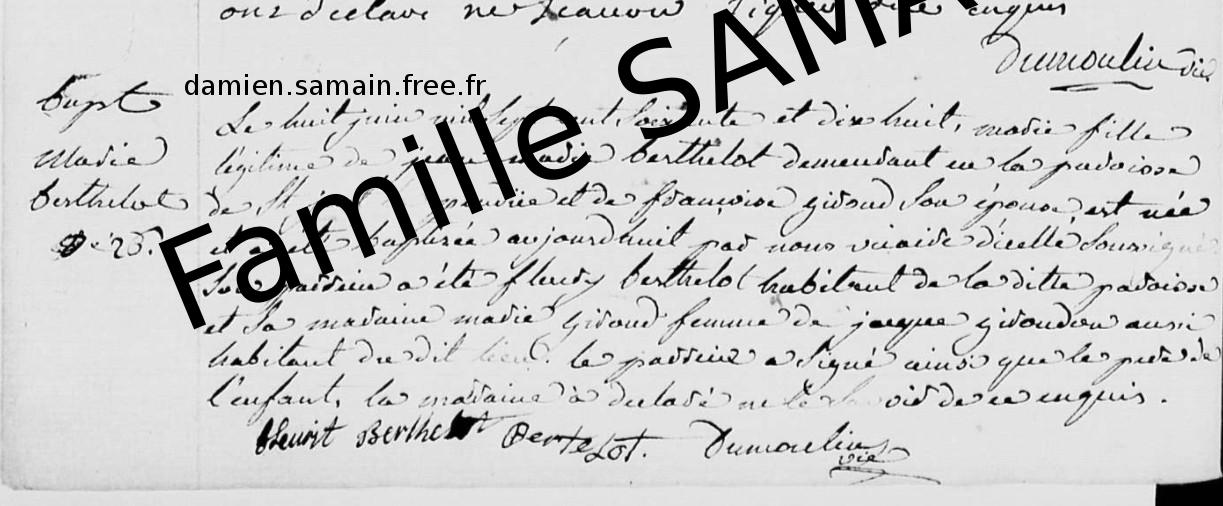 ont declaré ne sçavoir signer de ce enquis
Dumoulin vic
damien.samain.free.fr
Famille SAMA
bapt
Marie
Berthelot
Le huit juin mil sept cent soixante et dix huit, marie fille
légitime de jean marie berthelot demeurant en la paroisse
de St et de françoise giroud son épouse, est née
et a eté baptisée aujourdhuit par nous vicaire d'icelle soussigné
son parrein a été fleury berthelot habitant de la ditte paroisse
et sa maraine marie giroud femme de jacque girondon aussi
habitant du dit lieu. le parrein a signé ainsi que le pere de
l'enfant, la maraine à declaré ne le savoir de ce enquis.
Berthelot Bertelot. Dumoulin
vic